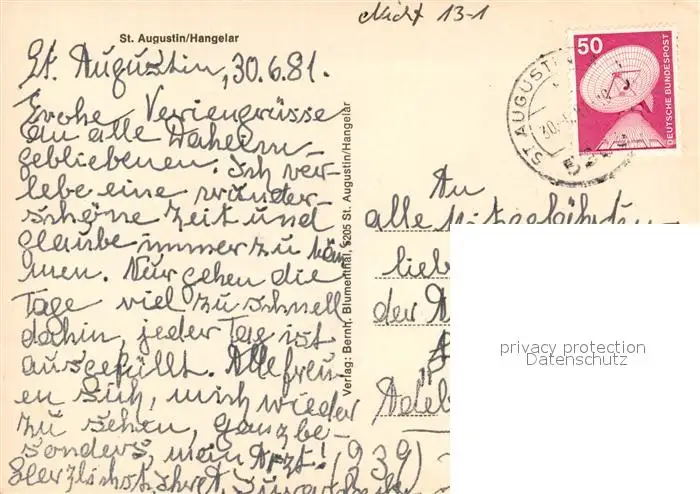 St. Augustin/Hangelar
Nicht 13-1
St. Augustin, 30.6.81.
Frohe Feriengrüsse
an alle Daheim-
gebliebenen. Ich ver-
lebe eine wunder-
schöne Zeit und
glaube immer zu träu-
men. Nur gehen die
Tage viel zu schnell
dahin, jeder Tag ist
ausgefüllt. Alle freu-
en sich, mich wieder
zu sehen, ganz be-
sonders, mein Arzt!
Herzlichst Ihre
Verlag: Bernh. Blumenthal, 5205 St. Augustin/Hangelar
50
DEUTSCHE BUNDESPOST
ST AUGUSTIN
30.
An
alle
lieb
der
(939)
privacy protection
Datenschutz